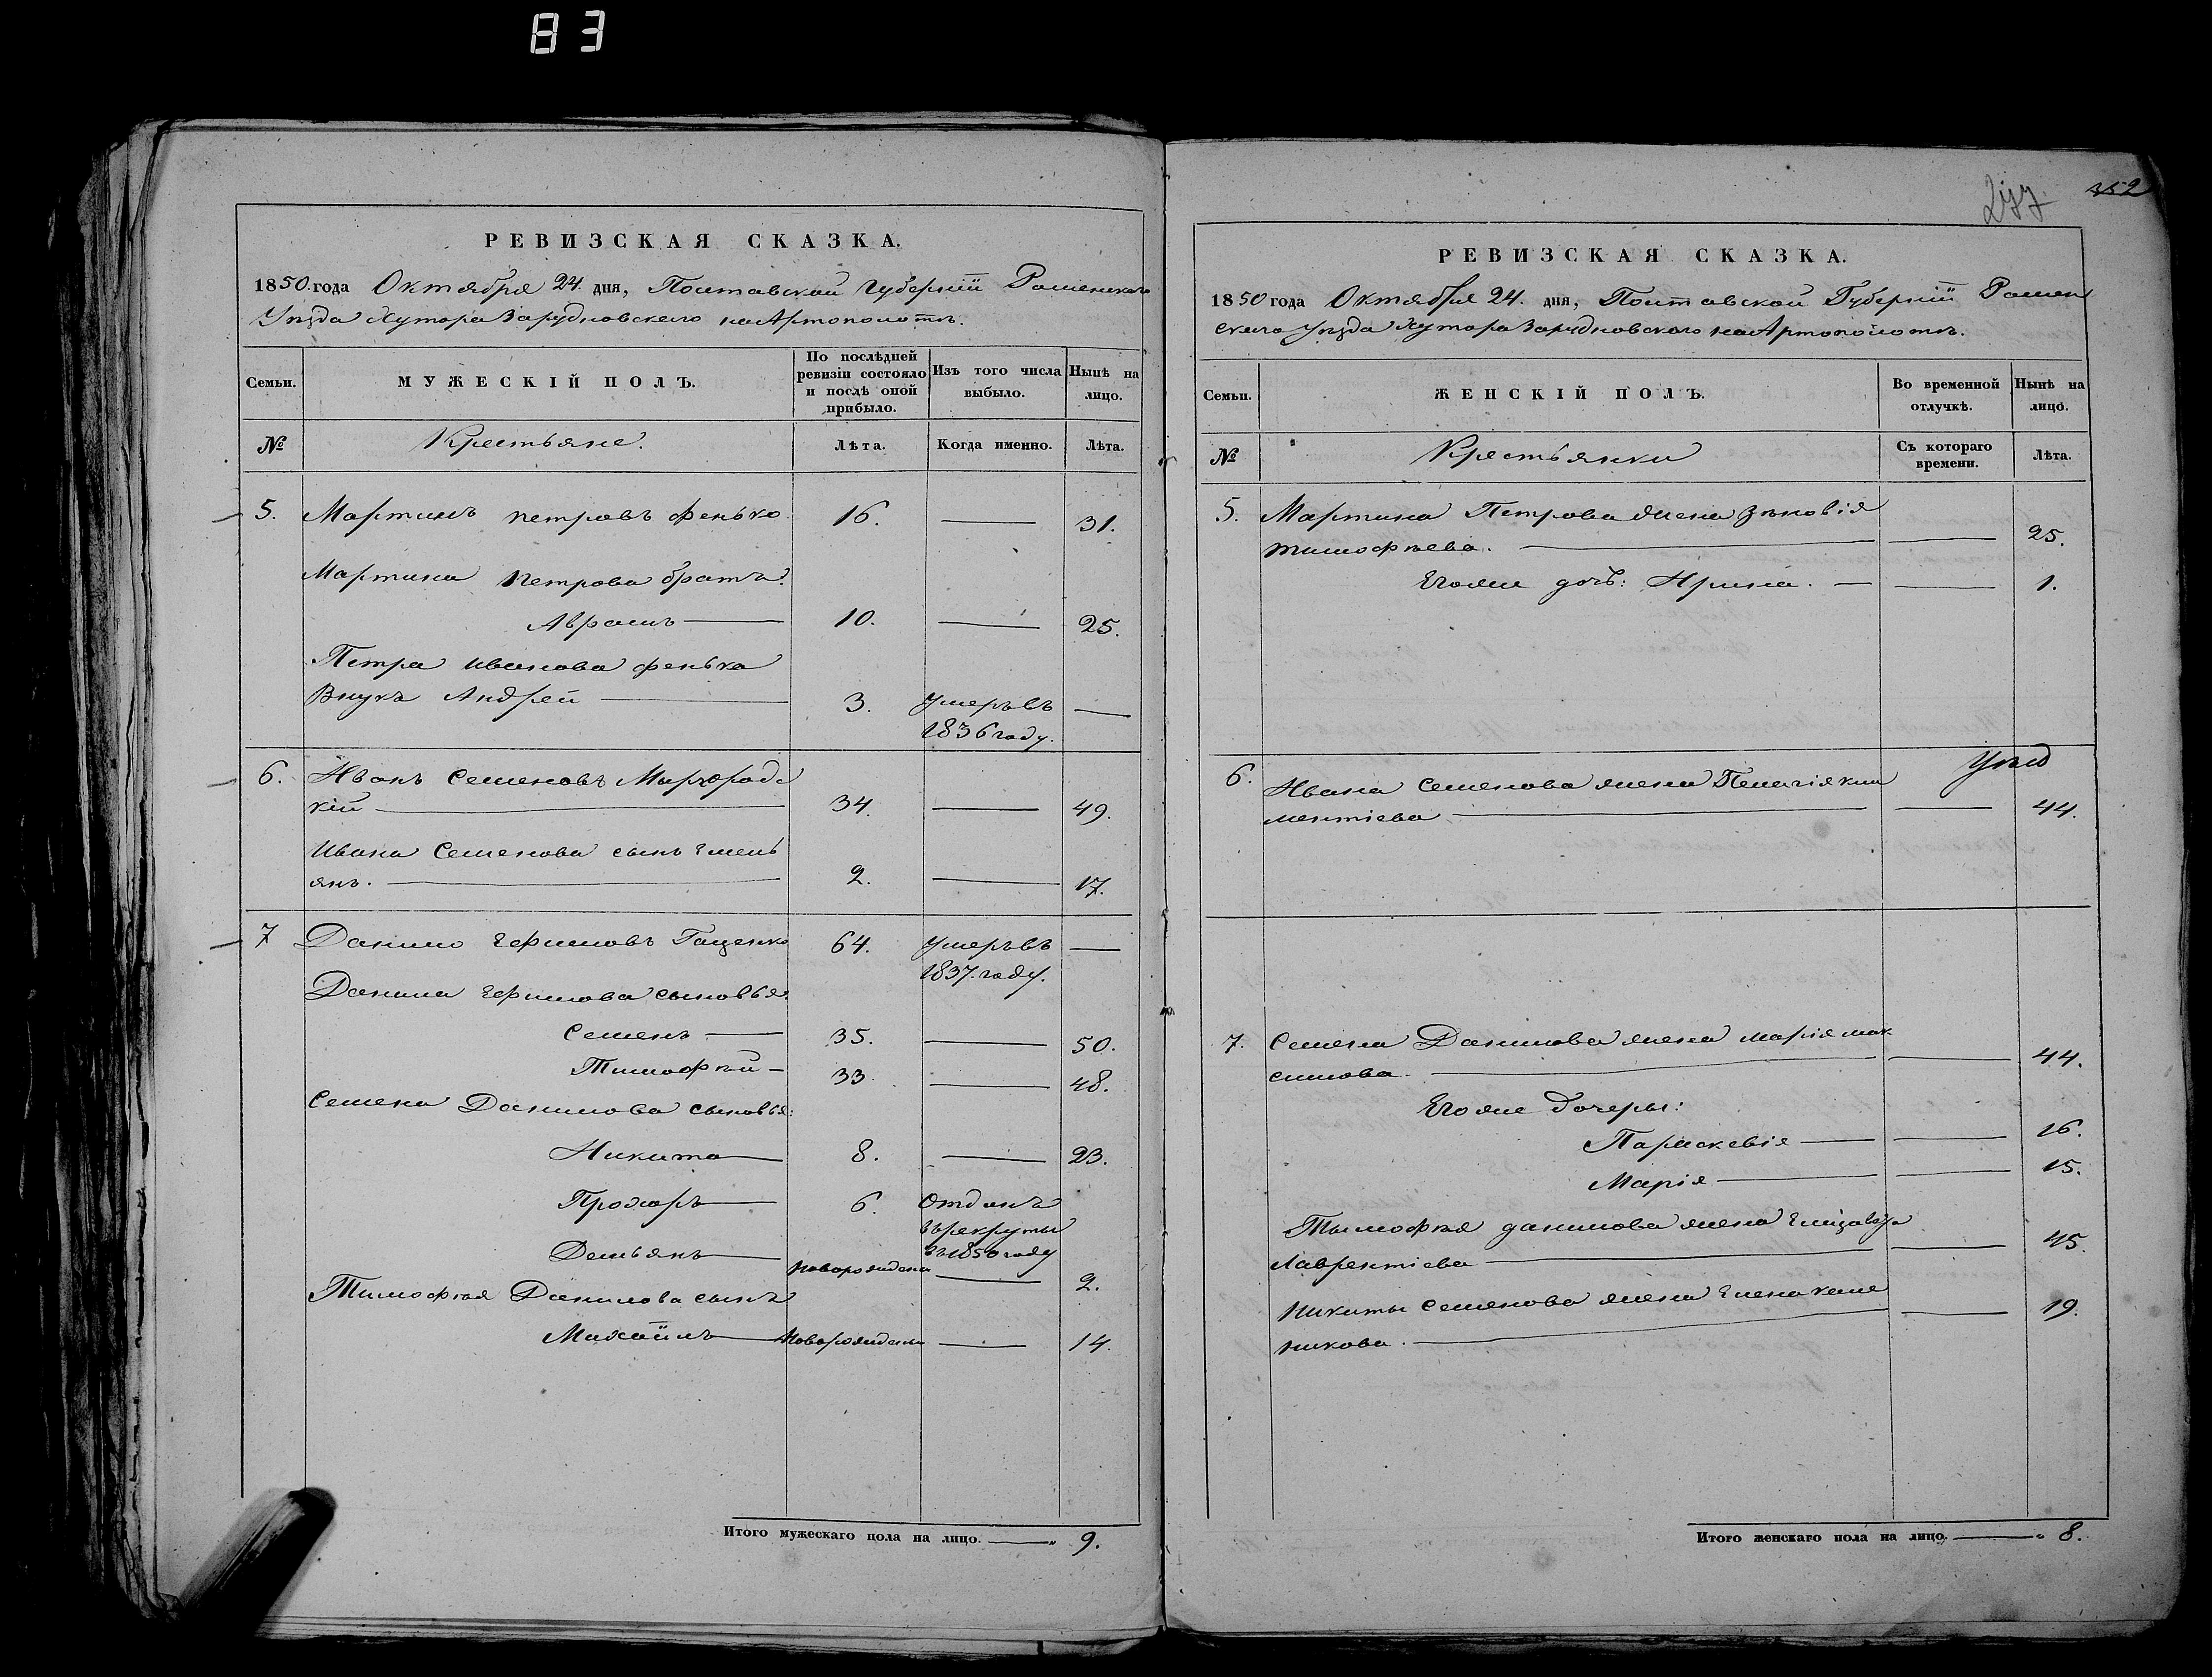 83
РЕВИЗСКАЯ СКАЗКА.
1850 года Октября 24 дня, Полтавской Губерніи Роменскаго
Уѣзда Хутора Зарудновскаго на Артополотѣ.
Семьи.
МУЖЕСКІЙ ПОЛЪ.
По послѣдней ревизіи состояло и послѣ оной прибыло.
Изъ того числа выбыло.
Нынѣ на лицо.
№
Крестьяне.
Лѣта.
Когда именно.
Лѣта.
5. Мартинъ Петровъ Фенько 16. — 31.
Мартина Петрова братъ:
Аврамъ — 10. — 25.
Петра Иванова Фенька
Внукъ Андрей — 3. Умеръ въ —
1836 году.
6. Иванъ Семеновъ Мирород
кій — 34. — 49.
Ивана Семенова сынъ Емель
янъ. — 2. — 17.
7 Данило Ефимовъ Гаценко 64. Умеръ въ —
1837. году.
Данила Ефимова сыновья:
Семенъ — 35. — 50.
Тимофѣй — 33. — 48.
Семена Данилова сыновья:
Никита — 8. — 23.
Прохоръ — 6. Отданъ
въ рекруты
въ 1850 году
Демьянъ — новорожденъ — 2.
Тимофѣя Данилова сынъ
Михаилъ — Новорожденъ — 14.
Итого мужескаго пола на лицо. — „ 9.
277
352
РЕВИЗСКАЯ СКАЗКА.
1850 года Октября 24. дня, Полтавской Губерніи Ромен
скаго Уѣзда Хутора Зарудновскаго на Артополотѣ.
Семьи.
ЖЕНСКІЙ ПОЛЪ.
Во временной отлучкѣ.
Нынѣ на лицо.
№
Крестьянки
Съ котораго времени.
Лѣта.
5. Мартина Петрова жена Зѣновія
Тимофѣева. — — 25.
Егоже дочь: Ирина. — — 1.
6. Ивана Семенова жена Пелагія Кли
ментіева — — 44.
7. Семена Данилова жена Марія Мак
симова. — — 44.
Егоже дочеры:
Параскевія — — 16.
Марія — — 15.
Тымофѣя Данилова жена
Лаврентіева — — 45.
Никиты Семенова жена Елена
никова. — — 19.
Итого женскаго пола на лицо. — „ 8.